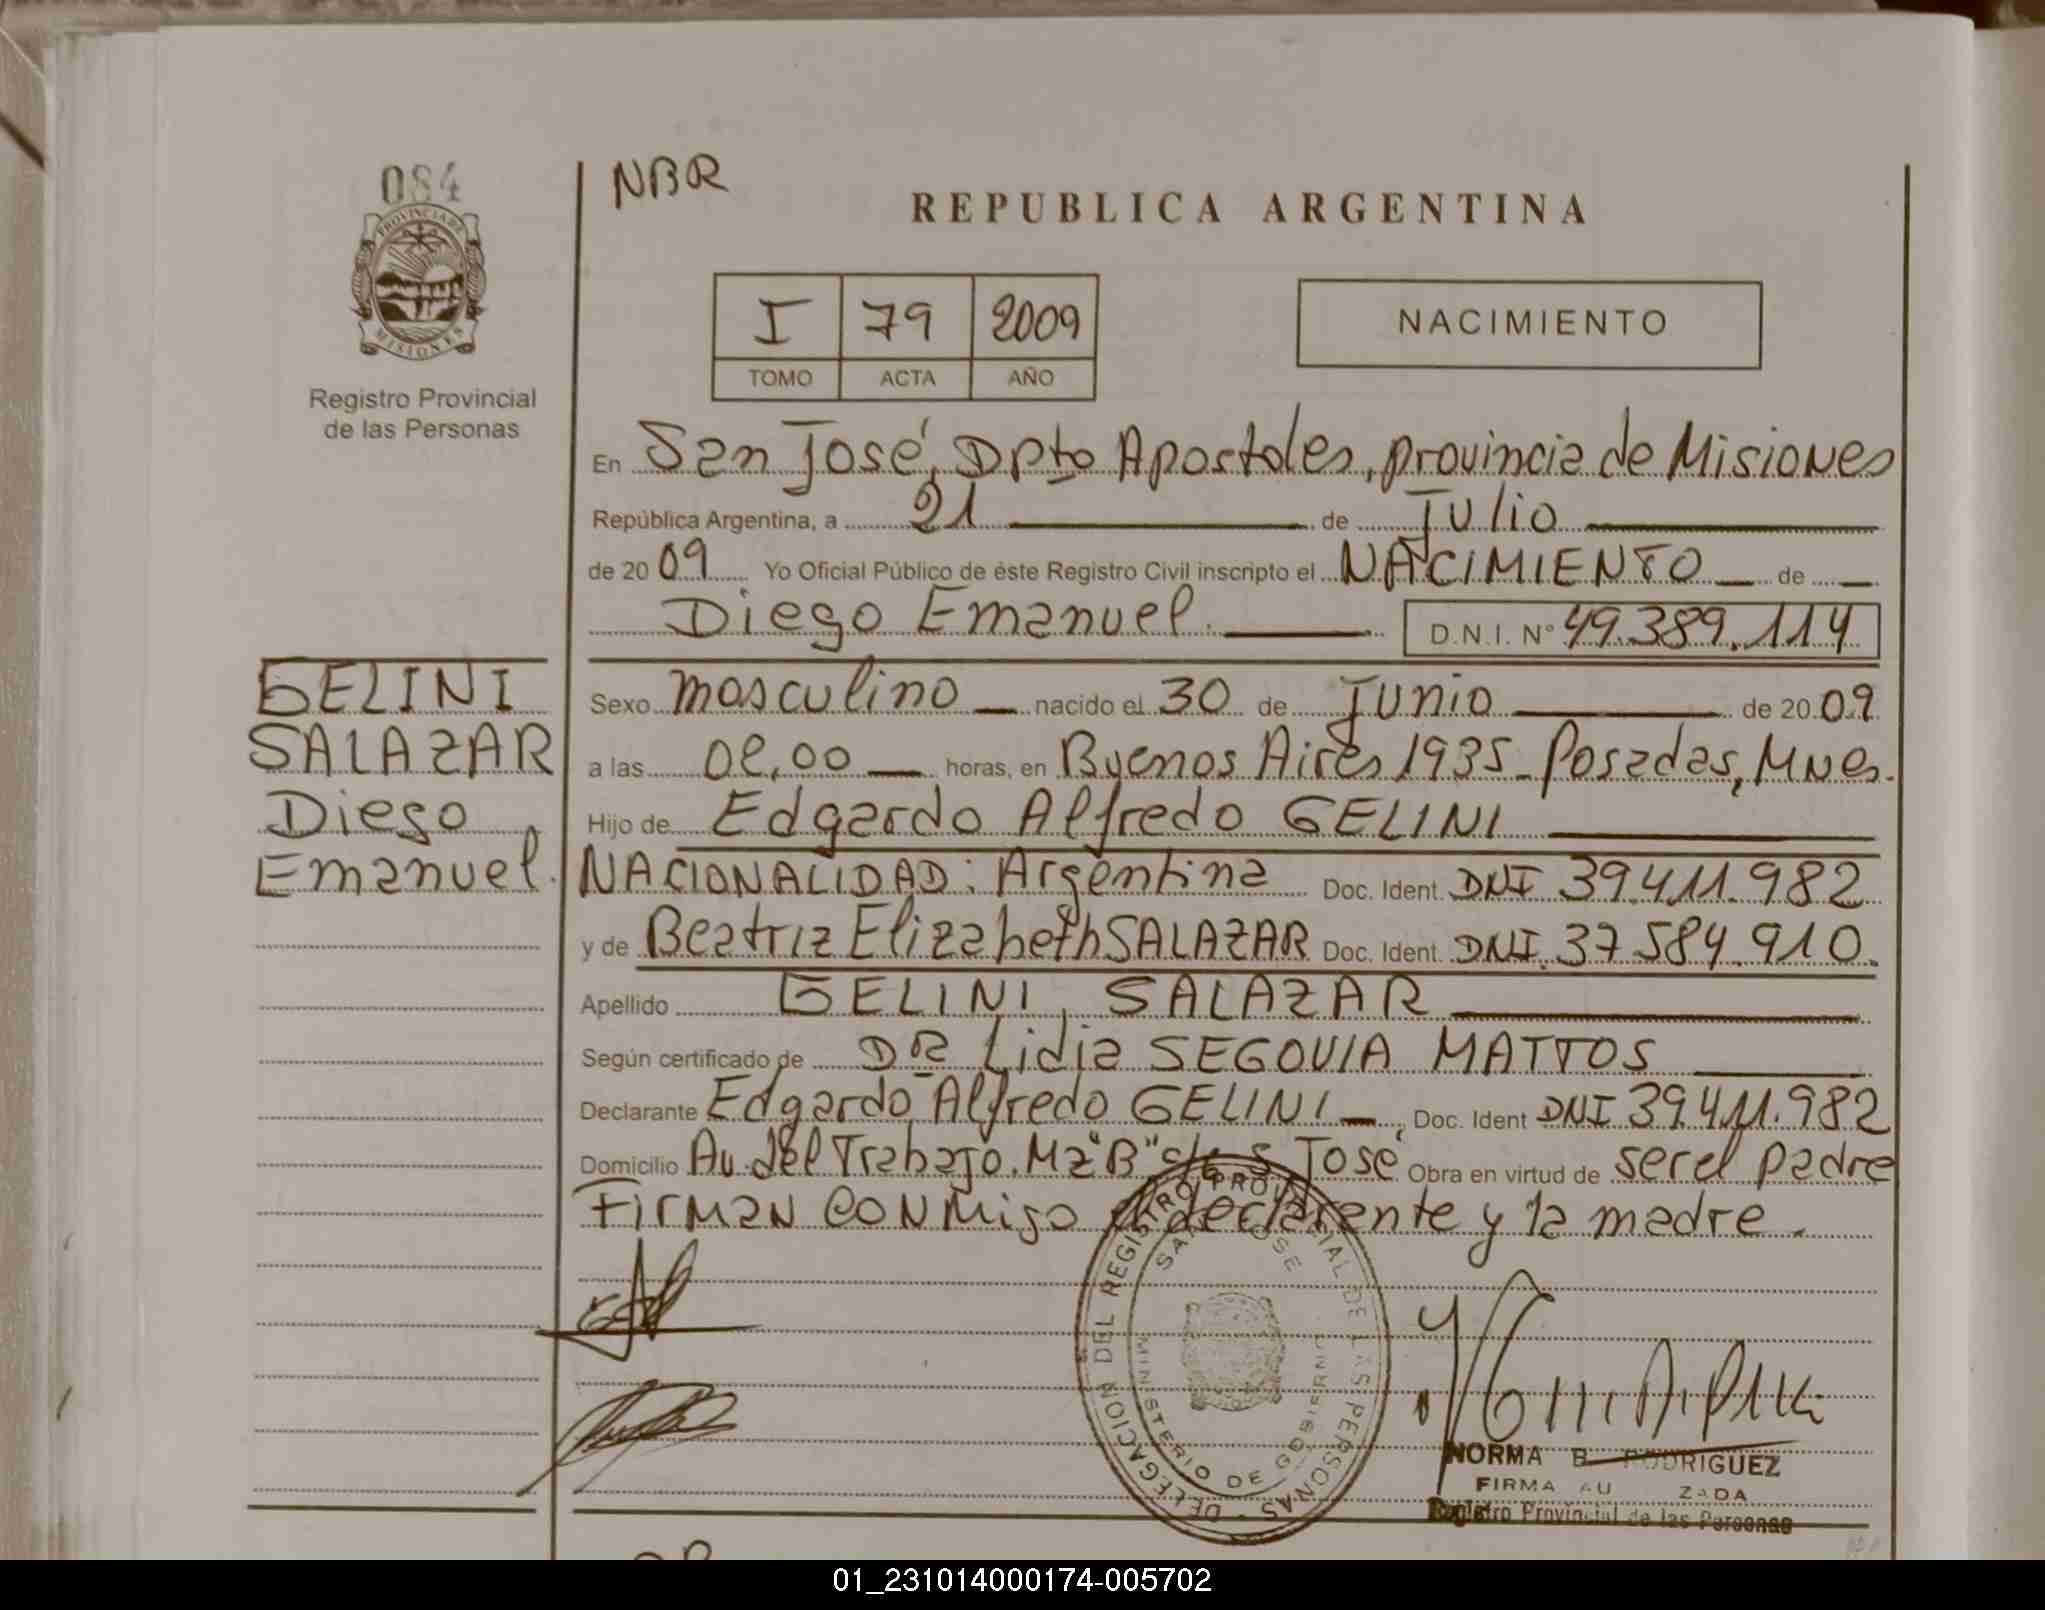 084
NBR
REPUBLICA ARGENTINA
PROVINCIA DE
MISIONES
I 79 2009
TOMO ACTA AÑO
NACIMIENTO
Registro Provincial
de las Personas
En San José, Dpto Apostoles, provincia de Misiones
República Argentina, a 21 de Julio
de 2009 Yo Oficial Público de éste Registro Civil inscripto el NACIMIENTO de
Diego Emanuel. D.N.I. Nº 49.389.114
GELINI
SALAZAR
Diego
Emanuel.
Sexo masculino nacido el 30 de Junio de 2009
a las 02,00 horas, en Buenos Aires 1935 - Posadas, Mnes.
Hijo de Edgardo Alfredo GELINI
NACIONALIDAD: Argentina Doc. Ident. DNI 39.411.982
y de Beatriz Elizabeth SALAZAR Doc. Ident. DNI. 37.584.910.
Apellido GELINI, SALAZAR
Según certificado de DRa Lidia SEGOVIA MATTOS
Declarante Edgardo Alfredo GELINI Doc. Ident DNI 39.411.982
Domicilio Av. del Trabajo. Mz "B" S. José Obra en virtud de ser el padre
Firman conmigo el declarante y la madre.
DELEGACION DEL REGISTRO PROVINCIAL DE LAS PERSONAS
SAN JOSE
MINISTERIO DE GOBIERNO
NORMA B. RODRIGUEZ
FIRMA AU ZADA
Registro Provincial de las Personas
01_231014000174-005702